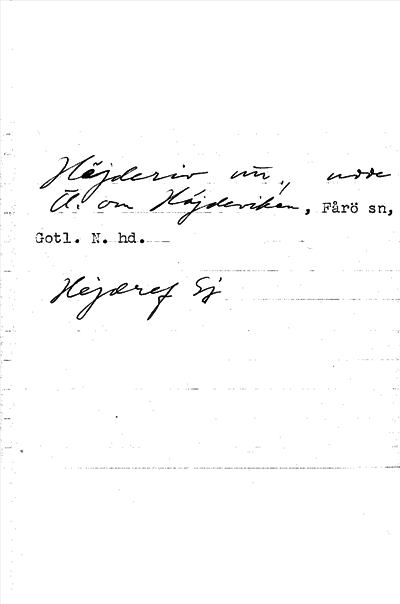 Höjderiv un., udde
Ö. om Höjderviken, Fårö sn,
Gotl. N. hd.
Hejderef Sj